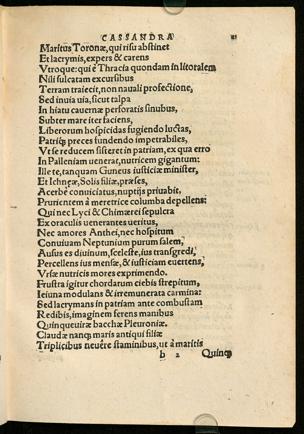 CASSANDRA
Maritus Toronæ, qui risu abstinet
Et lacrymis, expers & carens
Vtroque: qui è Thracia quondam in litoralem
Nili sulcatam excursibus
Terram traiecit, non nauali profectione,
Sed inuia uia, sicut talpa
In hiatu cauernæ perforatis sinubus,
Subter mare iter faciens,
Liberorum hospicidas fugiendo luctas,
Patriq; preces fundendo impetrabiles,
Vt se reducem sisteret in patriam, ex qua erro
In Palleniam uenerat, nutricem gigantum:
Ille te, tanquam Guneus iusticiæ minister,
Et Ichneæ, Solis filiæ, præses,
Acerbè conuiciatus, nuptijs priuabit,
Prurientem à meretrice columba depellens:
Qui nec Lyci & Chimærei sepulcra
Ex oraculis uenerantes ueritus,
Nec amores Anthei, nec hospitum
Conuiuam Neptunium purum salem,
Ausus es diuinum, sceleste, ius transgredi,
Percellens ius mensæ, & iusticiam euertens,
Vrsæ nutricis mores exprimendo.
Frustra igitur chordarum ciebis strepitum,
Ieiuna modulans & irremunerata carmina:
Sed lacrymans in patriam ante combustam
Redibis, imaginem ferens manibus
Quinqueuiræ bacchæ Pleuroniæ.
Claudæ nanq; maris antiqui filiæ
Triplicibus neuêre staminibus, ut à maritis
b 2 Quinq;